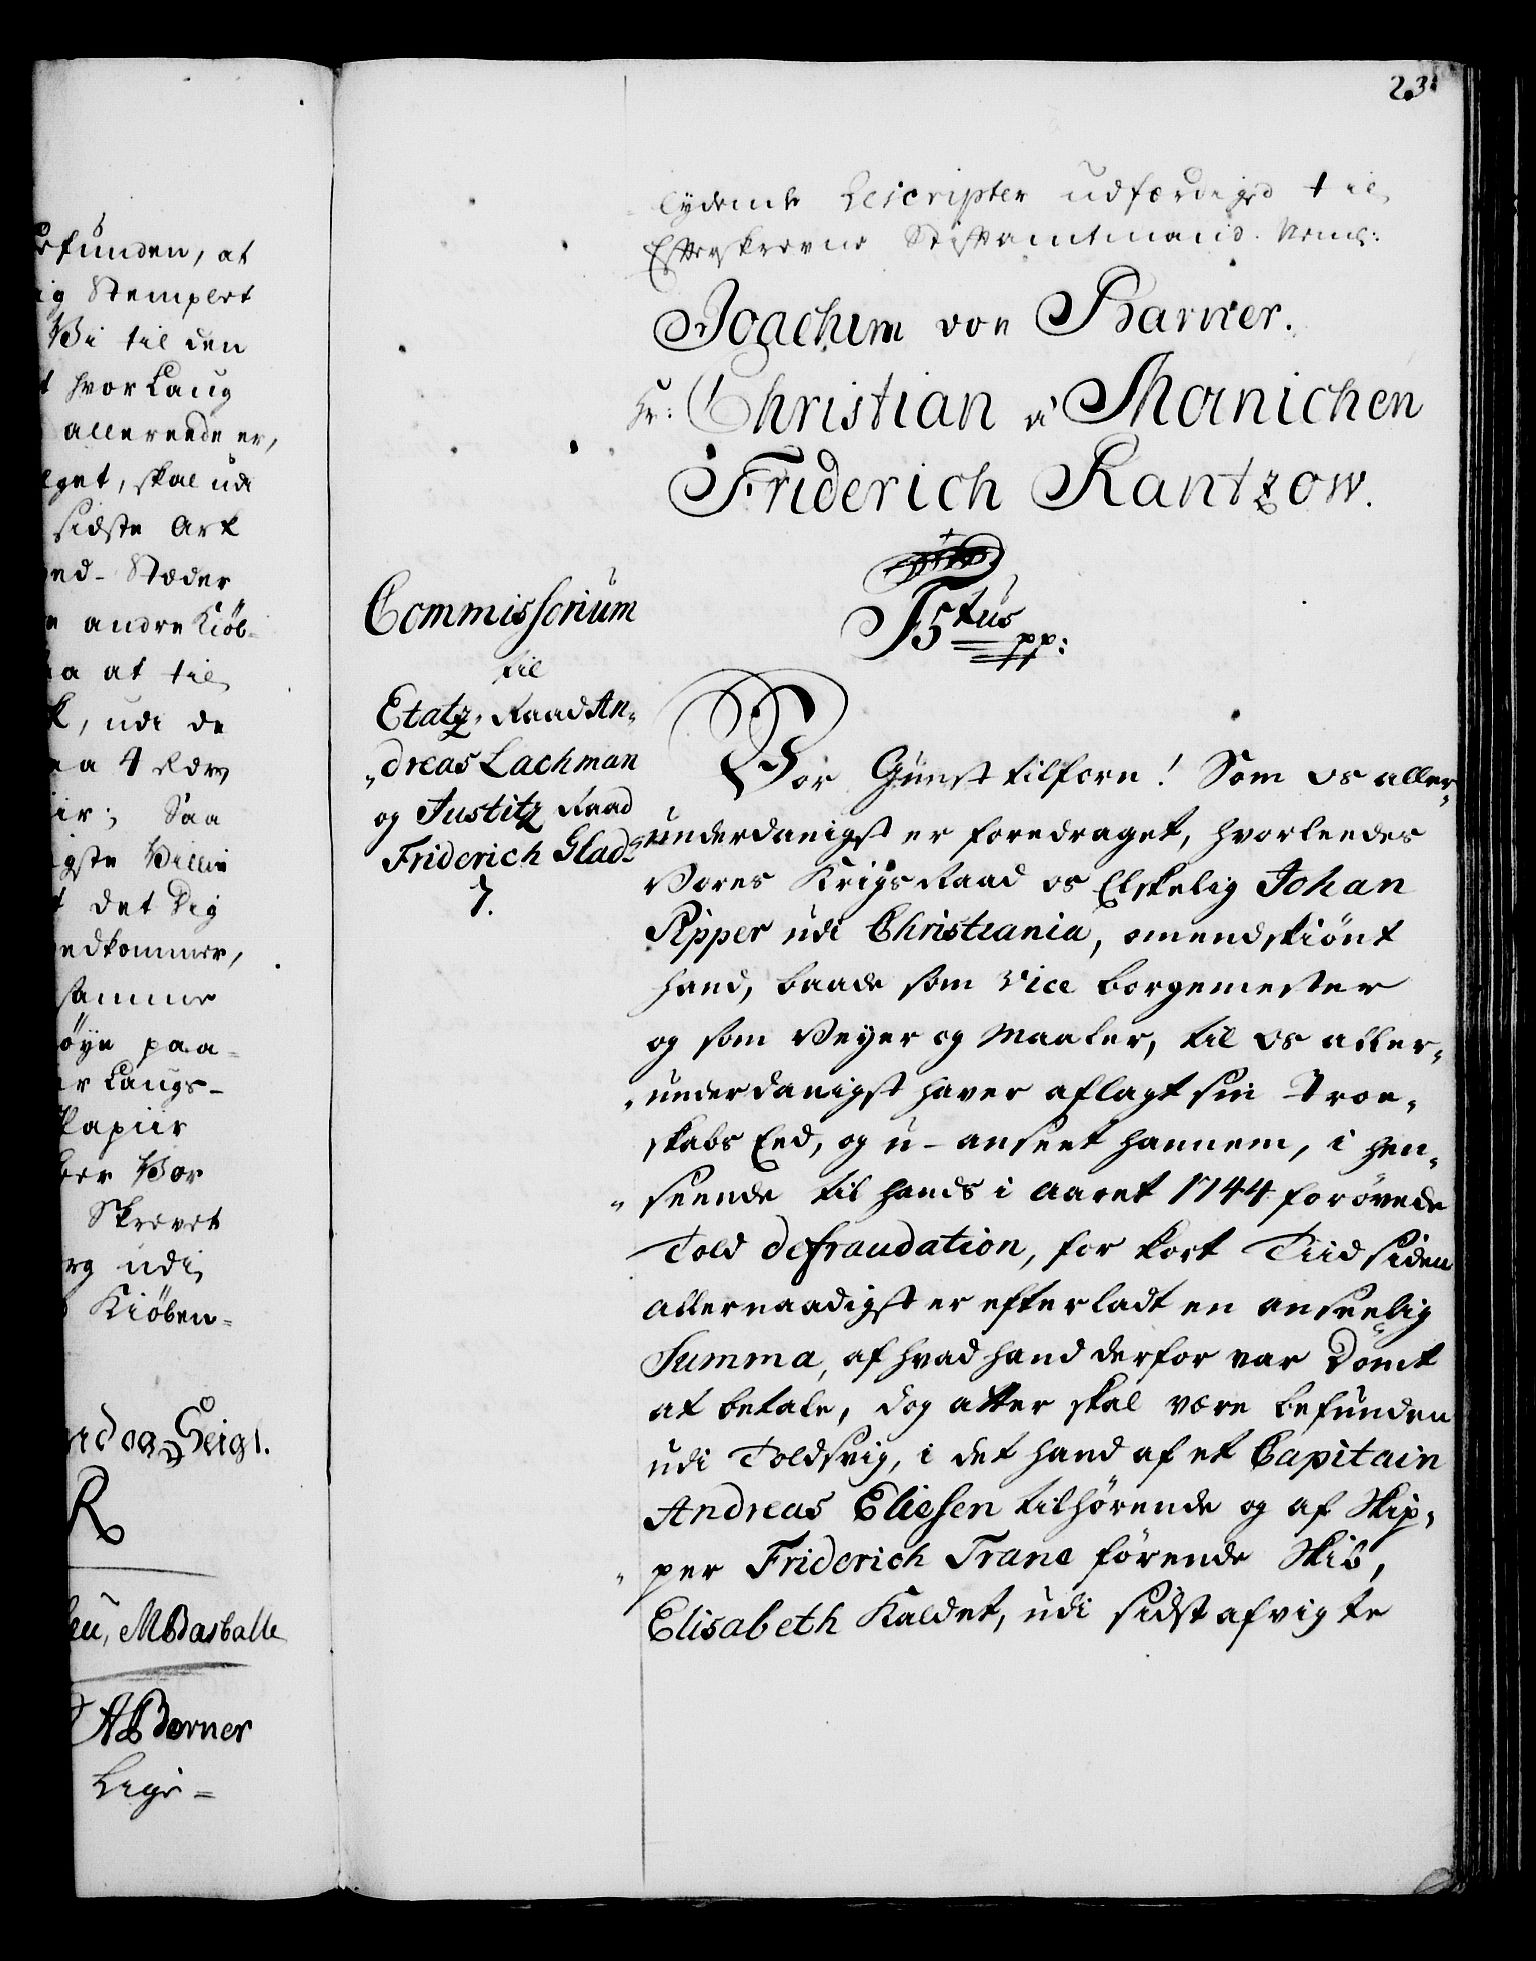 23.
lydende Rescripter udfærdiged til
Efterskrevne Stiftamtmænd. Neml:
Joachim von Barner.
Hr: Christian à Mœnichen
Friderich Rantzow.
F5tus pp:
Commissorium
til
Etatz-Raad An-
dreas Lachman
og Justitz Raad
Friderich Glad.
7.
Vor Gunst tilforn! Som os aller-
underdanigst er foredraget, hvorleedes
Vores KrigsRaad os Elskelig Johan
Pipper udi Christiania, omendskiönt
hand, baade som Vice borgemester
og som Veyer og Maaler, til os aller-
underdanigst haver aflagt sin Troe-
skabs Eed, og u-anseet hannem, i Hen-
seende til hands i Aaret 1744 forövede
Told defraudation, for kort Tiid siden
allernaadigst er efterladt en anseelig
Summa, af hvad hand derfor var Dömt
at betale, dog atter skal være befunden
udi Toldsvig, i det hand af et Capitain
Andreas Eliesen tilhörende og af Skip-
per Friderich Trane förende Skib,
Elisabeth Kaldet, udi sidst afvigte
befunden, at
ig Stemplet
Vi til den
hvor Laug
allereede er,
lget, skal udi
sidste Ark
ed-Stæder
andre Kiöb-
a at til
k, udi de
a 4 Rdr
ir; Saa
igste Villie
det Dig
edkommer,
samme
öye paa-
er Laugs-
Papiir
ber Vor
Skrevet
rg udi
Kiöben-
nd og Seigl.
R
MBasballe
ABerner
Lige-